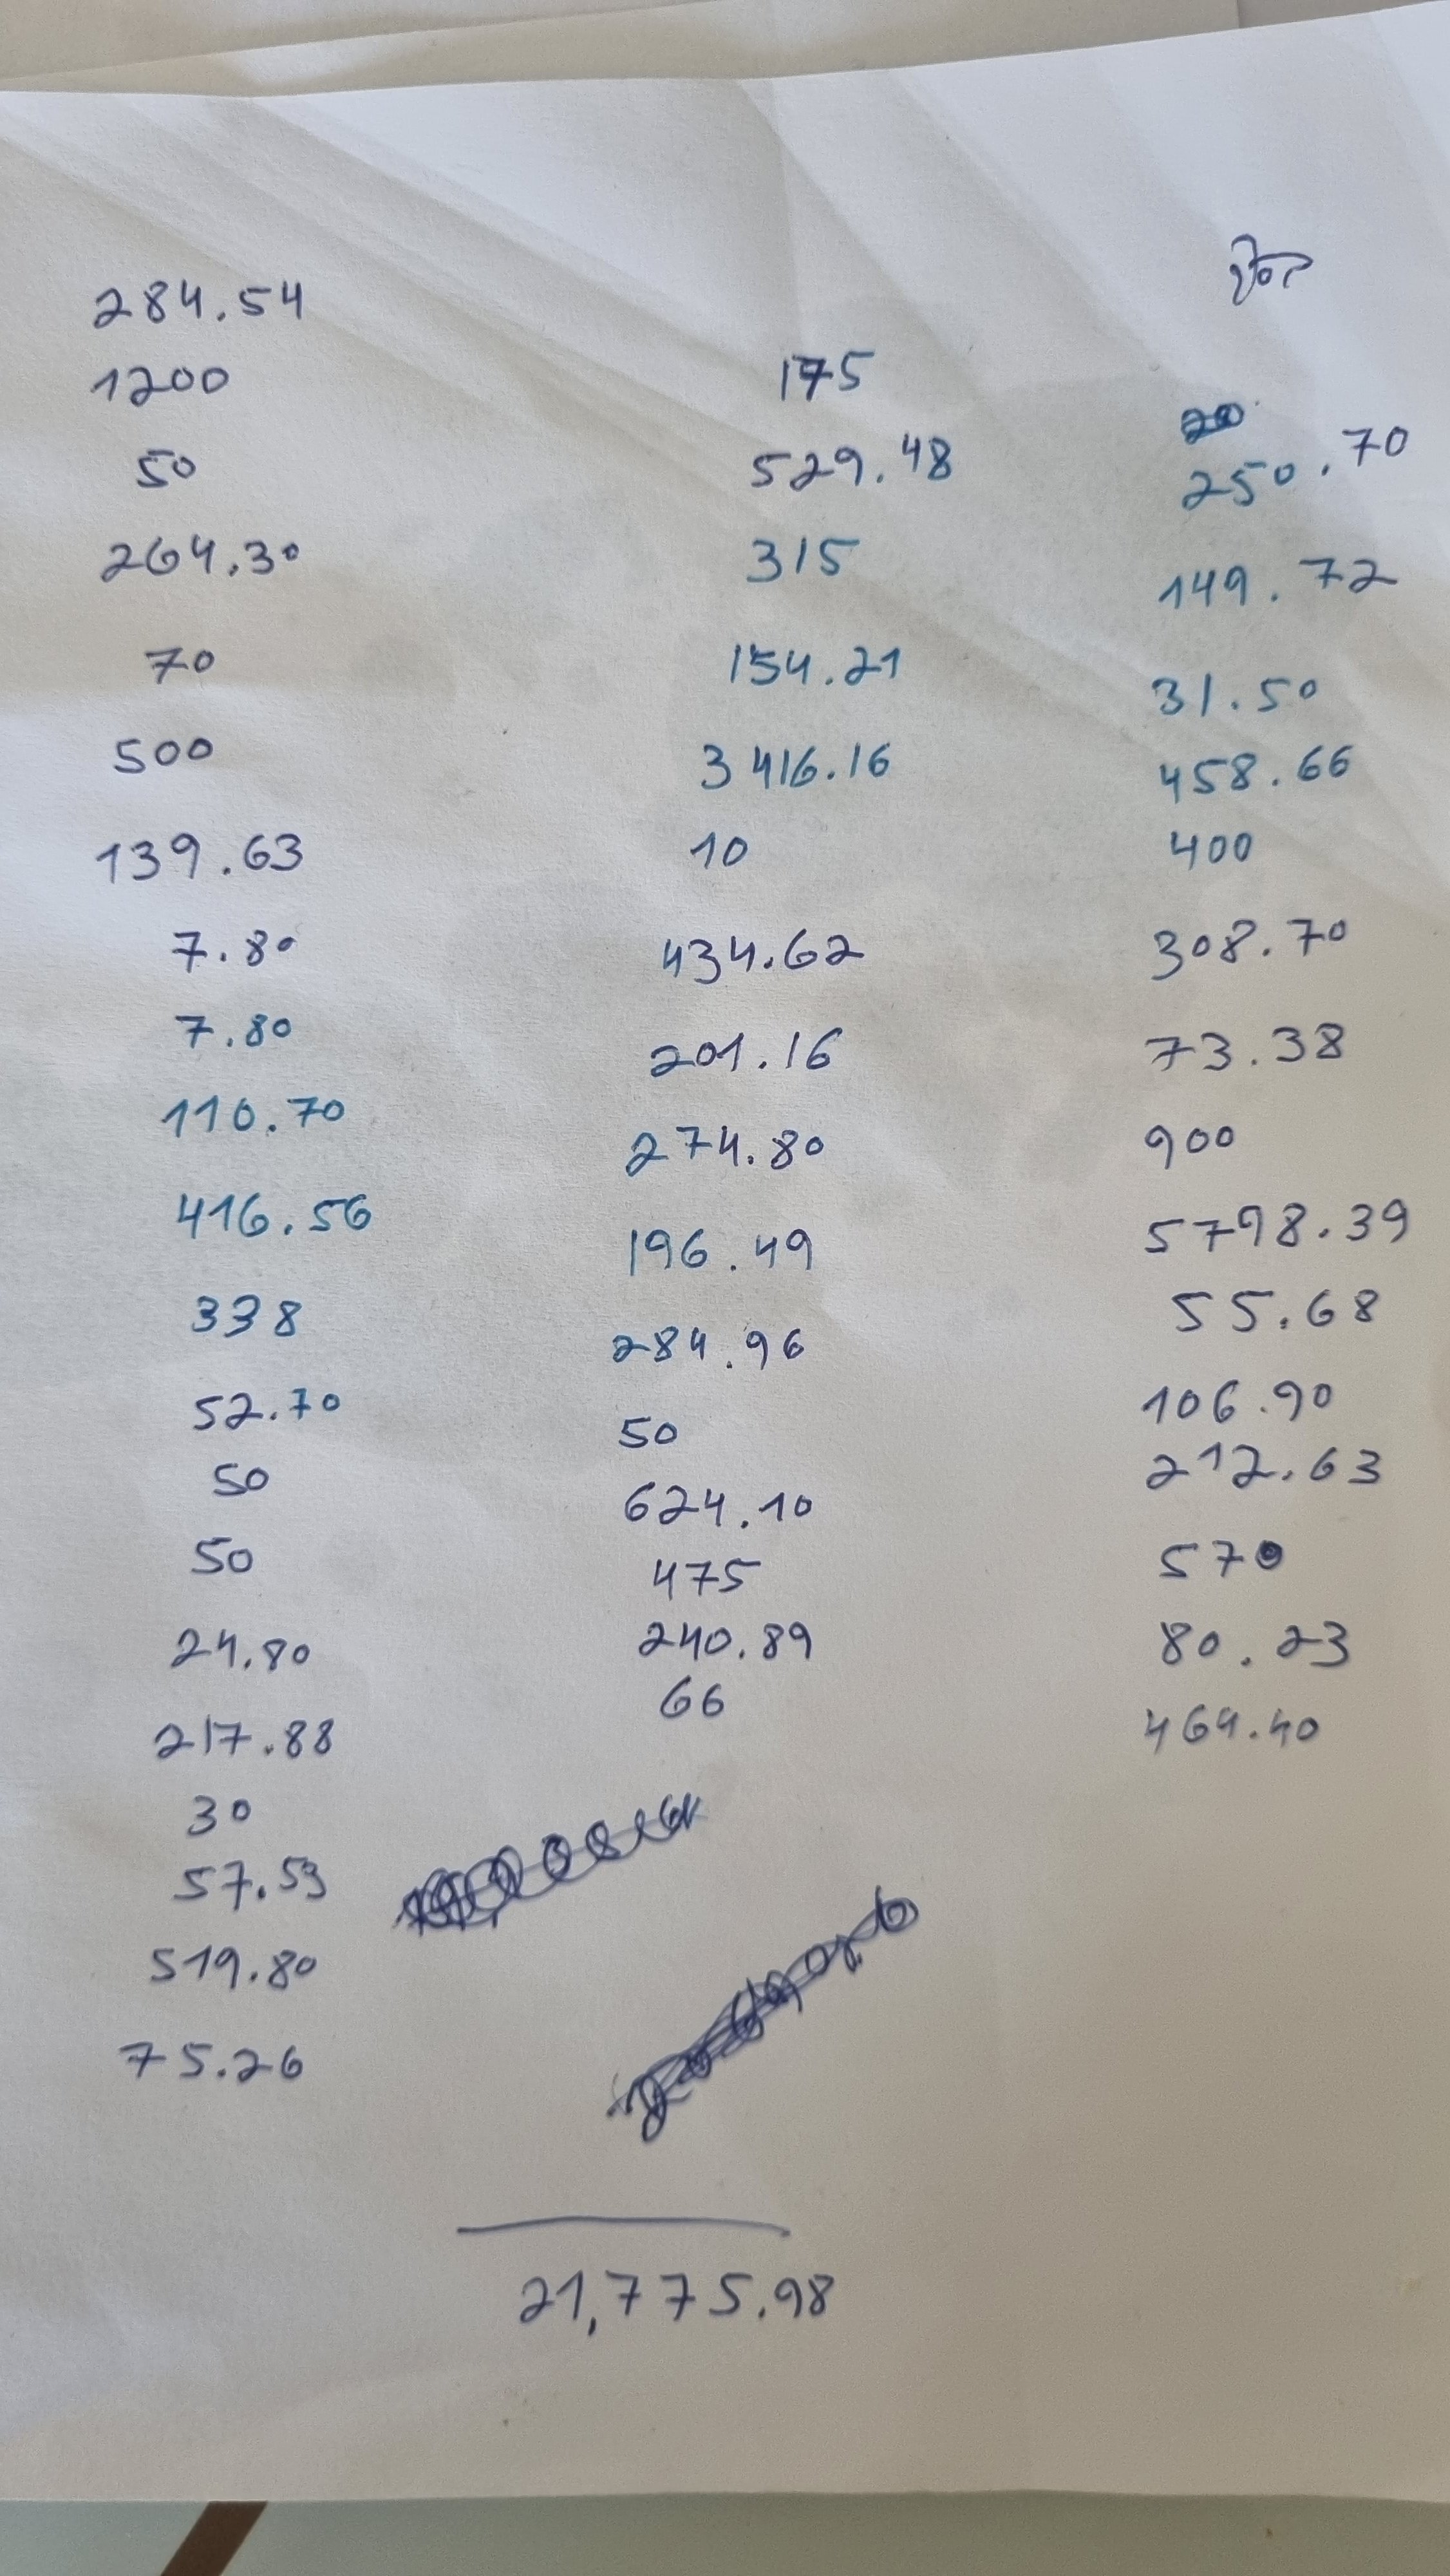 284.54
1200
50
264.30
70
500
139.63
7.80
7.80
110.70
416.56
338
52.70
50
50
24.80
217.88
30
57.53
519.80
75.26
175
529.48
315
154.21
3416.16
10
434.62
201.16
274.80
196.49
284.96
50
624.10
475
240.89
66
250.70
149.72
31.50
458.66
400
308.70
73.38
900
5798.39
55.68
106.90
212.63
570
80.23
464.40
21,775.98